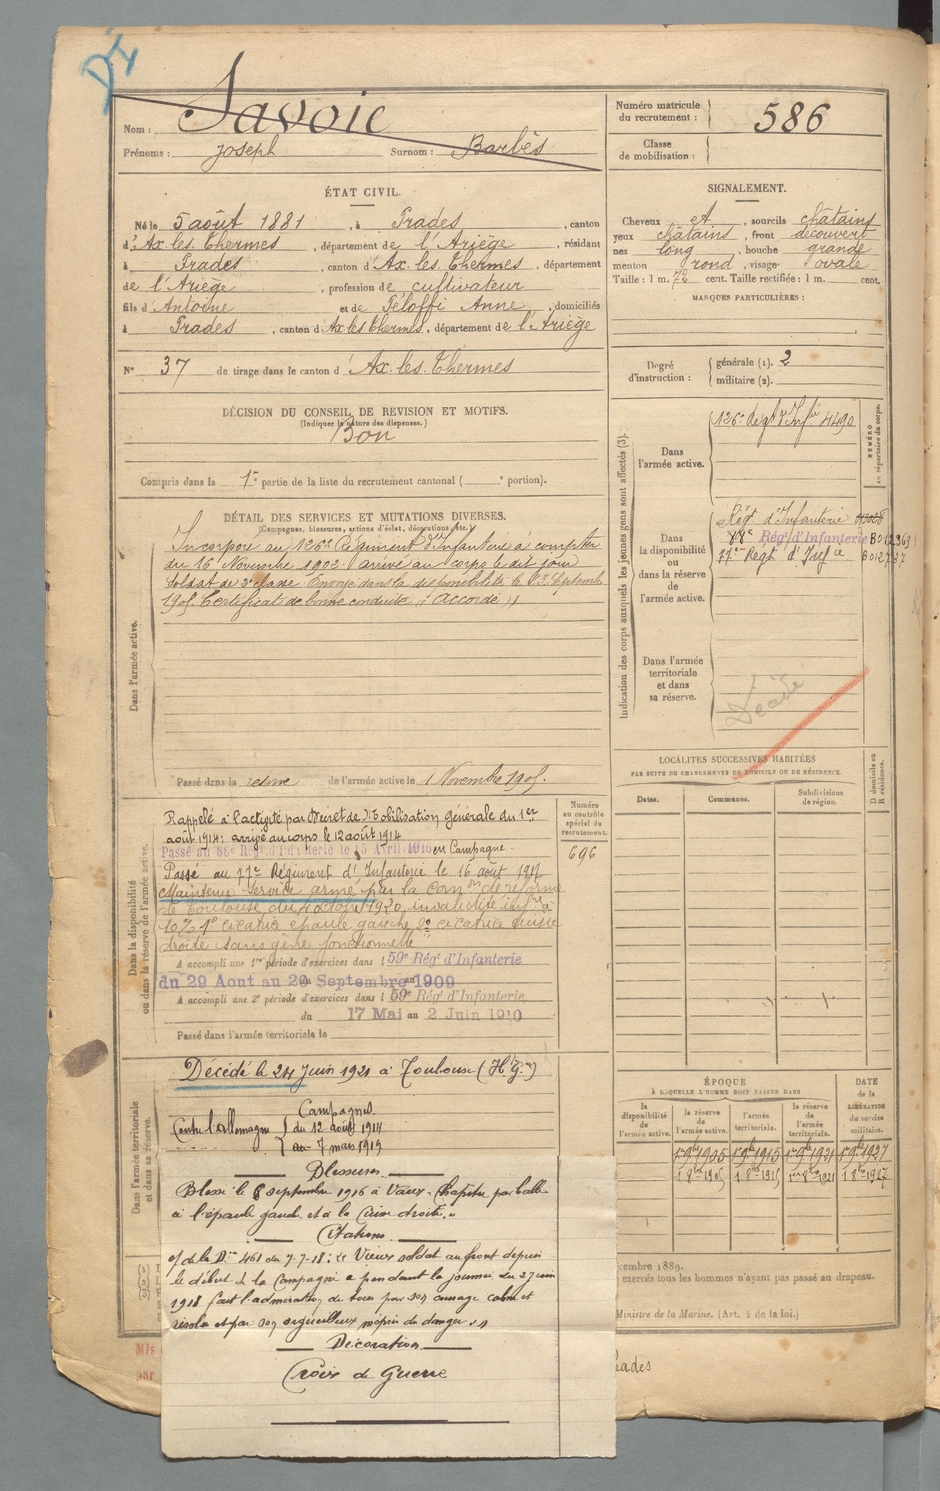 Nom : Savoie
Prénoms : Joseph Surnom : Barbès
Numéro matricule du recrutement : 586
Classe de mobilisation :
ÉTAT CIVIL.
Né le 5 août 1881, à Prades, canton
d'Ax-les-Thermes, département de l'Ariège, résidant
à Prades, canton d'Ax-les-Thermes, département
de l'Ariège, profession de cultivateur
fils d'Antoine et de Péloffi Anne, domiciliés
à Prades, canton d'Ax les Thermes, département de l'Ariège
N° 37 de tirage dans le canton d'Ax-les-Thermes
SIGNALEMENT.
Cheveux et, sourcils châtains
yeux châtains, front découvert
nez long, bouche grande
menton rond, visage ovale
Taille : 1 m. 72 cent. Taille rectifiée : 1 m. cent.
MARQUES PARTICULIÈRES :
Degré d'instruction : générale (1). 2
militaire (2).
DÉCISION DU CONSEIL DE REVISION ET MOTIFS.
(Indiquer la nature des dispenses.)
Bon
Compris dans la 1re partie de la liste du recrutement cantonal ( portion).
DÉTAIL DES SERVICES ET MUTATIONS DIVERSES.
(Campagnes, blessures, actions d'éclat, décorations, etc.)
Dans l'armée active.
Incorporé au 126e Régiment d'Infanterie à compter
du 16 Novembre 1902. Arrivé au corps le dit jour
Soldat de 2e classe. Envoyé dans la disponibilité le 23 Septembre
1905. Certificat de bonne conduite "Accordé"
Passé dans la réserve de l'armée active le 1 Novembre 1905.
Indication des corps auxquels les jeunes gens sont affectés (3).
NUMÉRO au répertoire du corps.
Dans l'armée active.
126e Régt d'Infie 4490
Dans la disponibilité ou dans la réserve de l'armée active.
Régt d'Infanterie
88e Régt d'Infanterie
77e Régt d'Infie
Dans l'armée territoriale et dans sa réserve.
Décédé
LOCALITÉS SUCCESSIVES HABITÉES
PAR SUITE DE CHANGEMENTS DE DOMICILE OU DE RÉSIDENCE.
Dates. Communes. Subdivisions de région.
D domicile ou R résidence.
Dans la disponibilité ou dans la réserve de l'armée active.
Numéro au contrôle spécial du recrutement.
696
Rappelé à l'activité par Décret de Mobilisation générale du 1er
août 1914; arrivé au corps le 12 août 1914
Passé au 88e Régt d'Infanterie le 15 Avril 1916 en Campagne.
Passé au 77e Régiment d'Infanterie le 16 août 1917
Maintenu Service armé par la Comon de réforme
de Toulouse du 4 octobre 1920 invalidité infre à
10% 1° cicatrice épaule gauche 2° cicatrice cuisse
droite sans gêne fonctionnelle
A accompli une 1re période d'exercices dans l 59e Régt d'Infanterie
du 29 Aout au 20 Septembre 1909
A accompli une 2e période d'exercices dans l 59e Régt d'Infanterie
du 17 Mai au 2 Juin 1910
Passé dans l'armée territoriale le
Dans l'armée territoriale et dans sa réserve.
Décédé le 24 Juin 1921 à Toulouse (Hte Gne)
Campagnes
Contre l'Allemagne du 12 août 1914
au 7 mars 1919
Blessures
Blessé le 8 septembre 1916 à Vaux-Chapitre par balle
à l'épaule gauche et à la Cuisse droite. "
Citations
o/ de la Don 461 du 7-7-18 : Le Vieux soldat au front depuis
le début de la Campagne a pendant la journée du 27 juin
1918 fait l'admiration de tous par son courage calme et
résolu et par son orgueilleux mépris du danger. "
Décoration
Croix de Guerre
ÉPOQUE
À LAQUELLE L'HOMME DOIT PASSER DANS
la disponibilité de l'armée active. la réserve de l'armée active. l'armée territoriale. la réserve de l'armée territoriale.
DATE de la LIBÉRATION du service militaire.
1er 9bre 1905 1er 9bre 1915 1er 9bre 1921 1er 9bre 1927
1 8bre 1905 1 8bre 1915 1er 8bre 1921 1 8bre 1927
cembre 1889.
exercés tous les hommes n'ayant pas passé au drapeau.
Ministre de la Marine. (Art. 4 de la loi.)